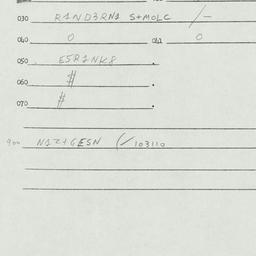 030 R1ND3RN1 S+MOLC /-
040 0 041 0
050 ESR1NK8 .
060 # .
070 # .
900 N1Z+GESN (/103110